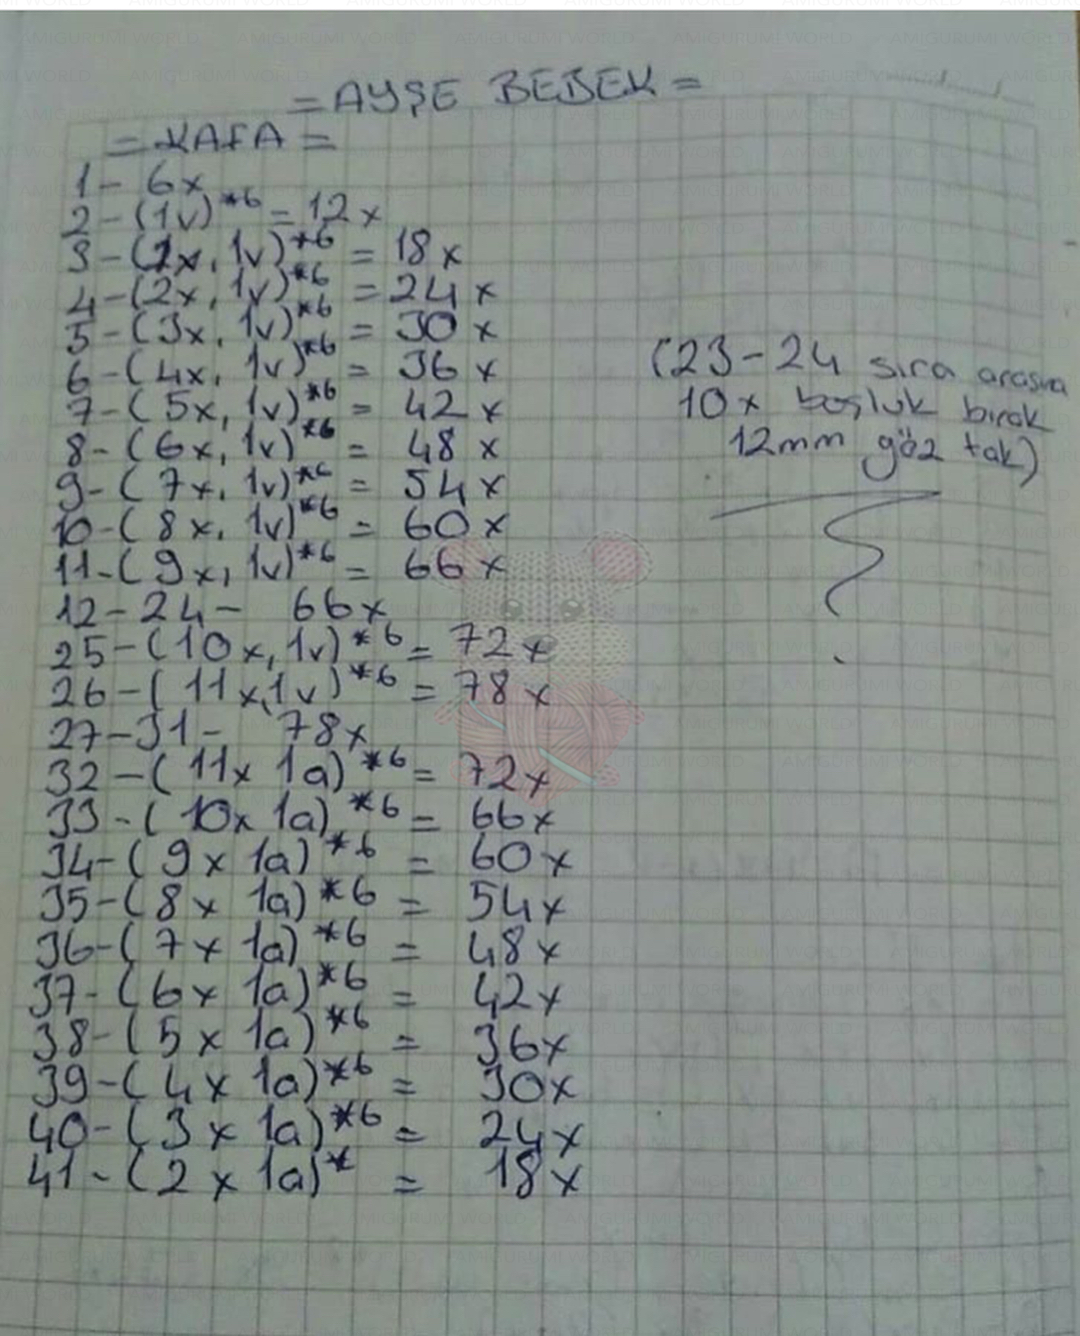 = AYŞE BEBEK =
= KAFA =
1- 6x
2-(1v)*6 = 12x
3-(1x, 1v)*6 = 18x
4-(2x, 1v)*6 = 24x
5-(3x, 1v)*6 = 30x
6-(4x, 1v)*6 = 36x
7-(5x, 1v)*6 = 42x
8-(6x, 1v)*6 = 48x
9-(7x, 1v)*6 = 54x
10-(8x, 1v)*6 = 60x
11-(9x, 1v)*6 = 66x
12-24- 66x
25-(10x, 1v)*6 = 72x
26-(11x, 1v)*6 = 78x
27-31- 78x
32-(11x 1a)*6 = 72x
33-(10x 1a)*6 = 66x
34-(9x 1a)*6 = 60x
35-(8x 1a)*6 = 54x
36-(7x 1a)*6 = 48x
37-(6x 1a)*6 = 42x
38-(5x 1a)*6 = 36x
39-(4x 1a)*6 = 30x
40-(3x 1a)*6 = 24x
41-(2x 1a)* = 18x
(23-24 sıra arasına
10x boşluk bırak
12mm göz tak)
AMIGURUMI WORLD